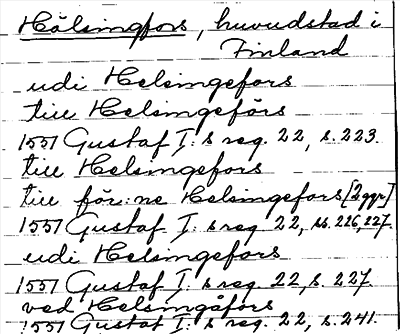 Hälsingfors, huvudstad i
Finland
udi Helsingefors
till Helsingförs
1551 Gustaf I:s reg. 22, s. 223.
till Helsingefors
till för:ne Helsingefors [2 ggr]
1551 Gustaf I:s reg. 22, ss. 226, 227.
udi Helsingefors
1551 Gustaf I:s reg. 22, s. 227
ved Helsingåfors
1551 Gustaf I:s reg. 22, s. 241.